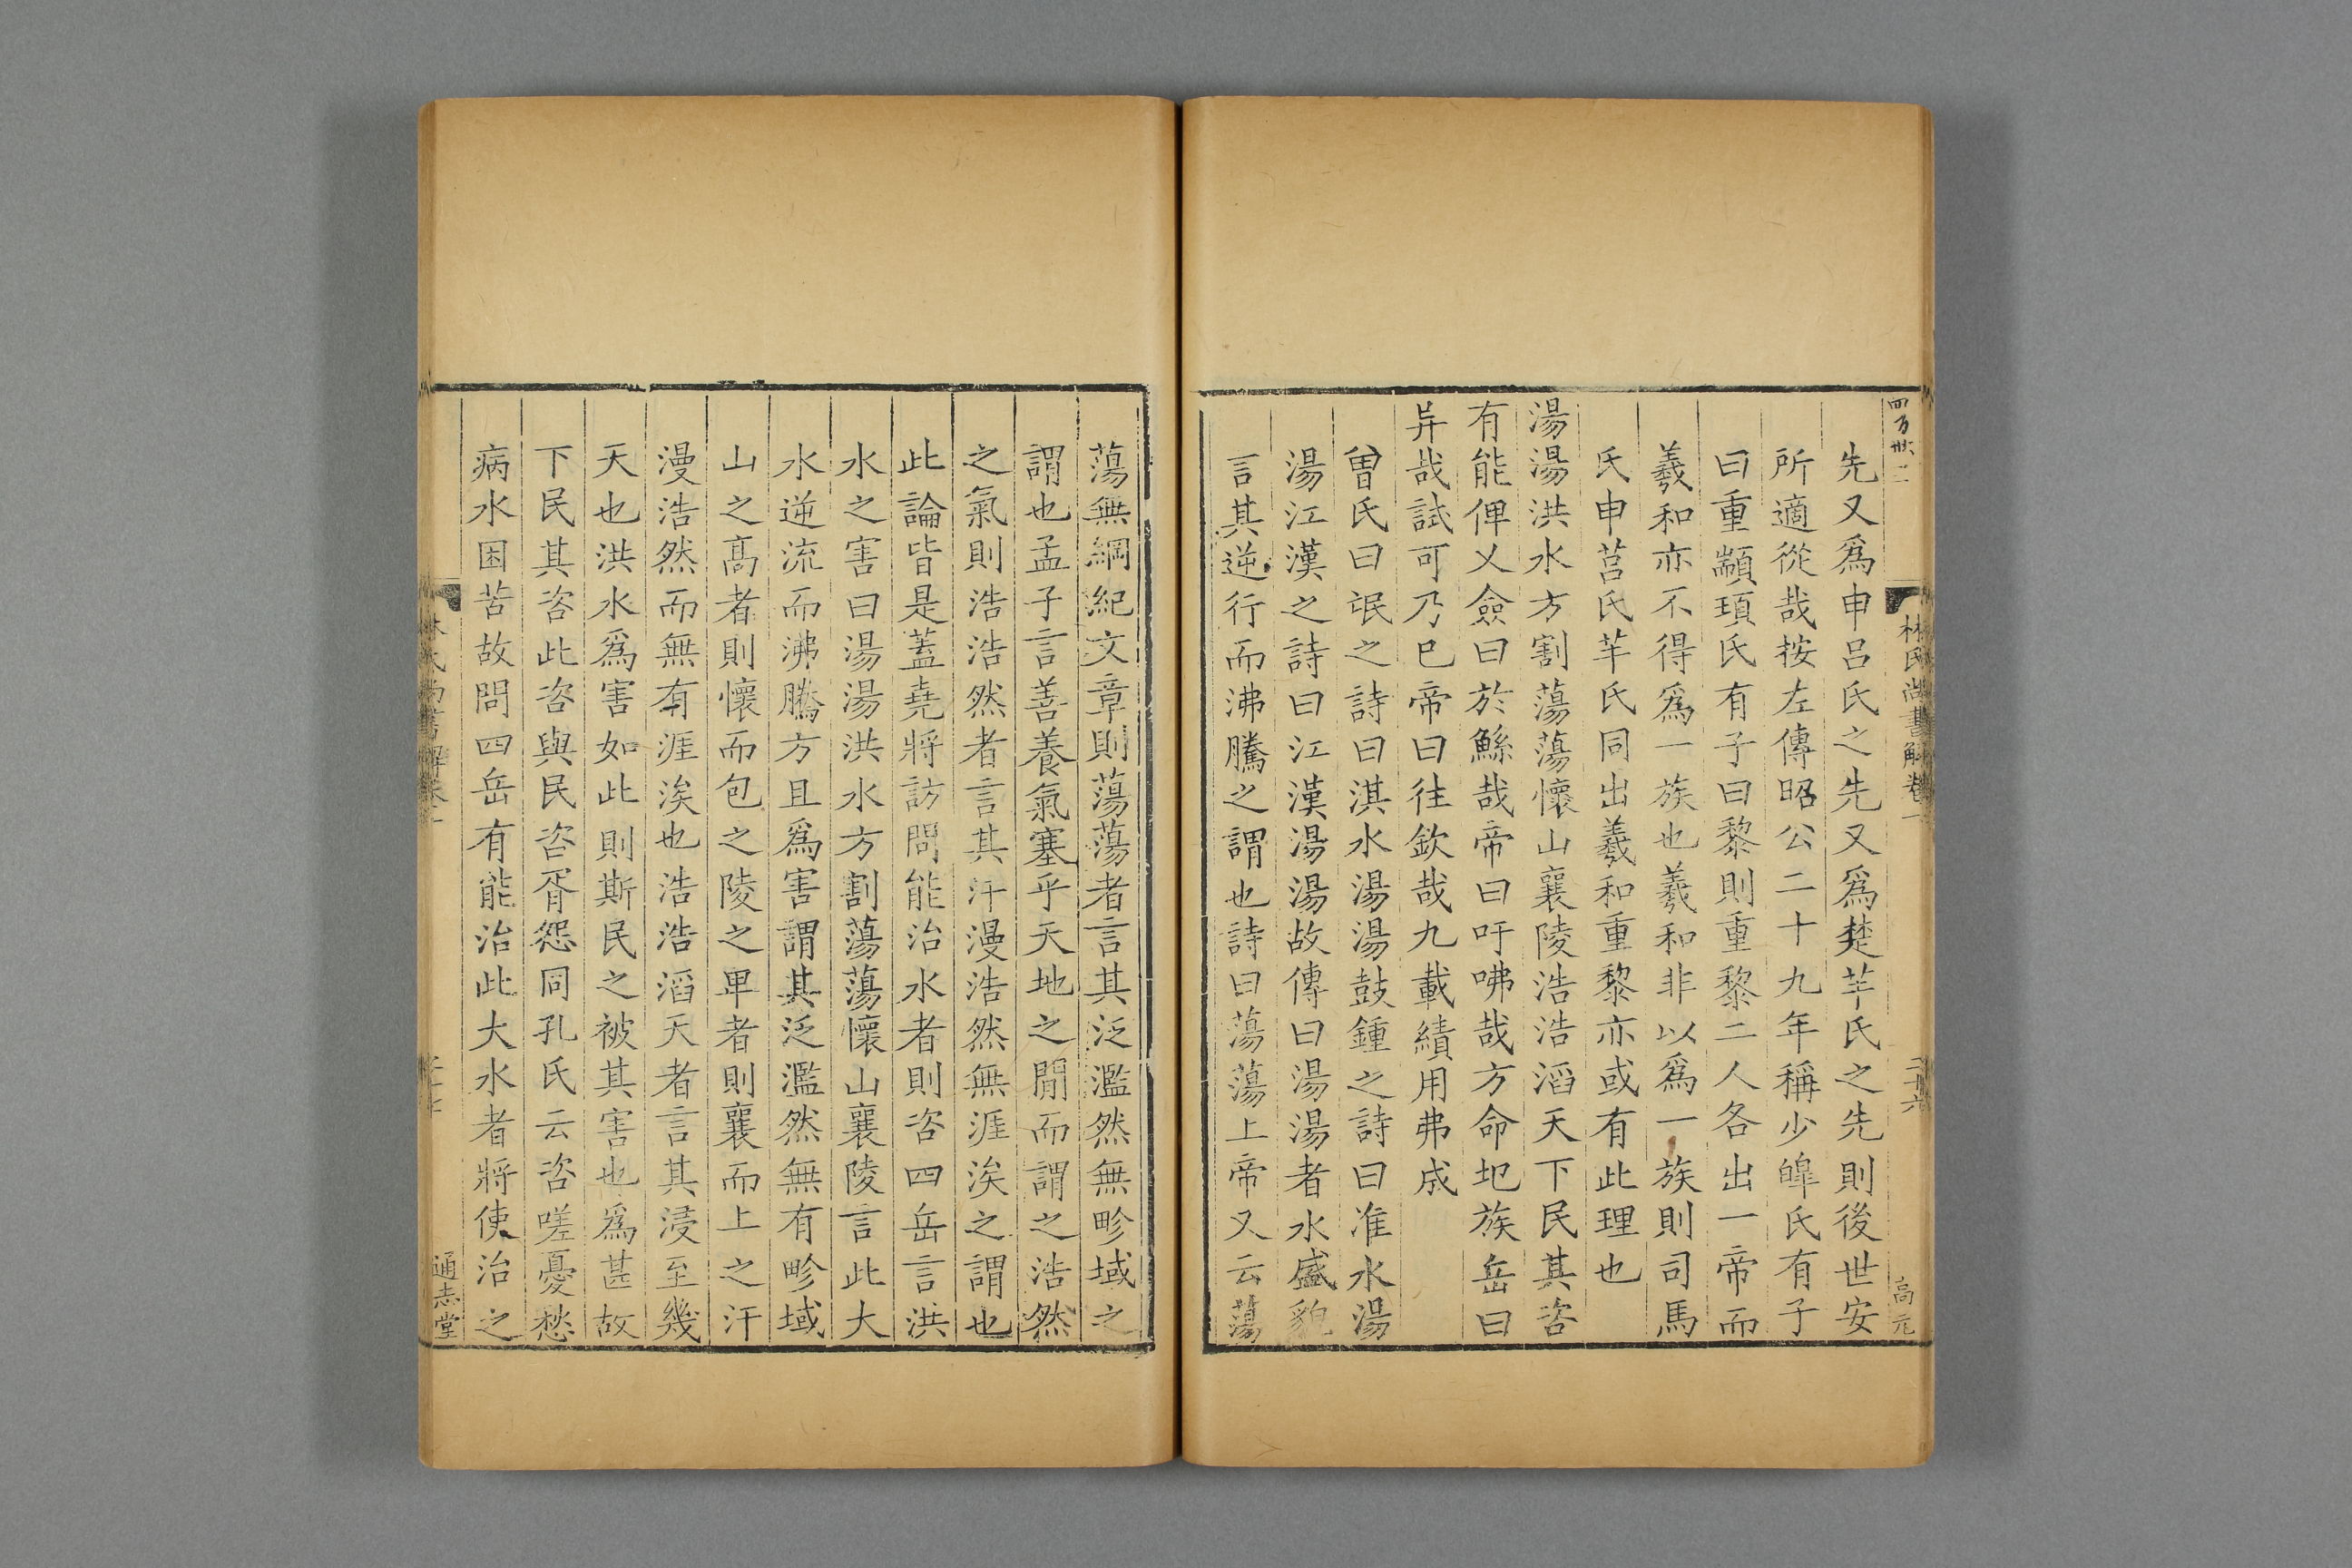 林氏尚書解卷一
二十六
高元
先又爲申呂氏之先又爲楚芊氏之先則後世安
所適從哉按左傳昭公二十九年稱少皥氏有子
曰重顓頊氏有子曰黎則重黎二人各出一帝而
羲和亦不得爲一族也羲和非以爲一族則司馬
氏申莒氏芊氏同出羲和重黎亦或有此理也
湯湯洪水方割蕩蕩懷山襄陵浩浩滔天下民其咨
有能俾乂僉曰於鯀哉帝曰吁咈哉方命圯族岳曰
异哉試可乃巳帝曰往欽哉九載績用弗成
曽氏曰氓之詩曰淇水湯湯鼓鍾之詩曰淮水湯
湯江漢之詩曰江漢湯湯故傳曰湯湯者水盛貌
言其逆行而沸騰之謂也詩曰蕩蕩上帝又云蕩
蕩無綱紀文章則蕩蕩者言其泛濫然無畛域之
謂也孟子言善養氣塞乎天地之閒而謂之浩然
之氣則浩浩然者言其汗漫浩然無涯涘之謂也
此論皆是蓋堯將訪問能治水者則咨四岳言洪
水之害曰湯湯洪水方割蕩蕩懷山襄陵言此大
水逆流而沸騰方且爲害謂其泛濫然無有畛域
山之髙者則懷而包之陵之卑者則襄而上之汗
漫浩然而無有涯涘也浩浩滔天者言其浸至幾
天也洪水爲害如此則斯民之被其害也爲甚故
下民其咨此咨與民咨胥怨同孔氏云咨嗟憂愁
病水困苦故問四岳有能治此大水者將使治之
通志堂